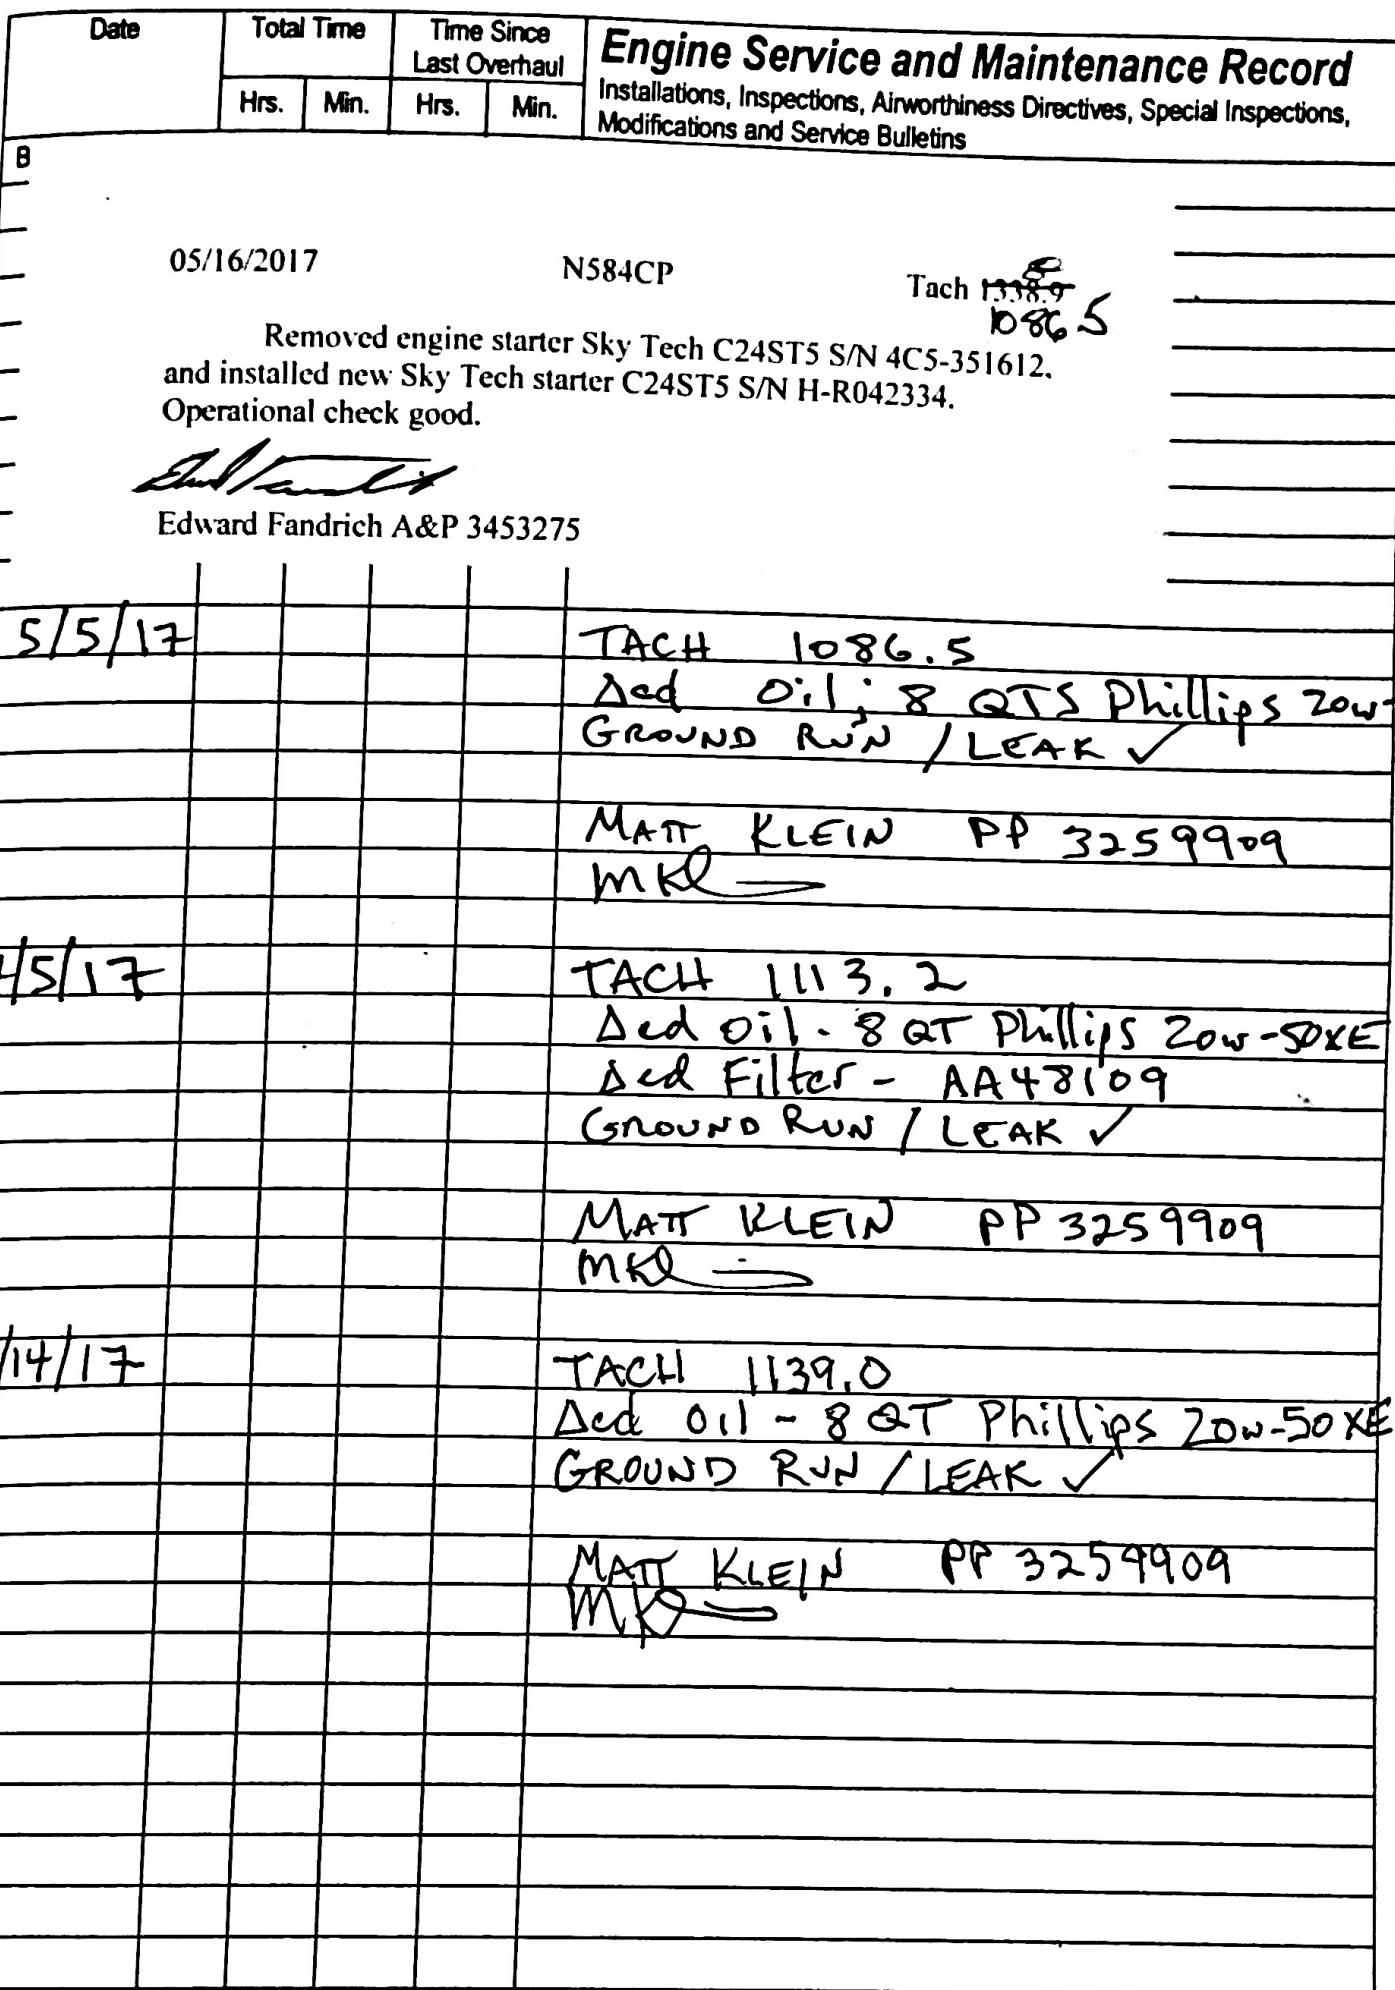 Date Total Time Time Since Last Overhaul Engine Service and Maintenance Record
Hrs. Min. Hrs. Min. Installations, Inspections, Airworthiness Directives, Special Inspections,
Modifications and Service Bulletins
B
05/16/2017 N584CP Tach 1338.9
1086.5
Removed engine starter Sky Tech C24ST5 S/N 4C5-351612.
and installed new Sky Tech starter C24ST5 S/N H-R042334.
Operational check good.
Edward Fandrich A&P 3453275
5/5/17 TACH 1086.5
Δed Oil; 8 QTS Phillips 20w-
GROUND RUN / LEAK ✓
MATT KLEIN PP 3259909
5/17 TACH 1113.2
Δed Oil - 8 QT Phillips 20w-50XE
Δed Filter - AA48109
GROUND RUN / LEAK ✓
MATT KLEIN PP 3259909
/14/17 TACH 1139.0
Δed Oil - 8 QT Phillips 20w-50XE
GROUND RUN / LEAK ✓
MATT KLEIN PP 3259909